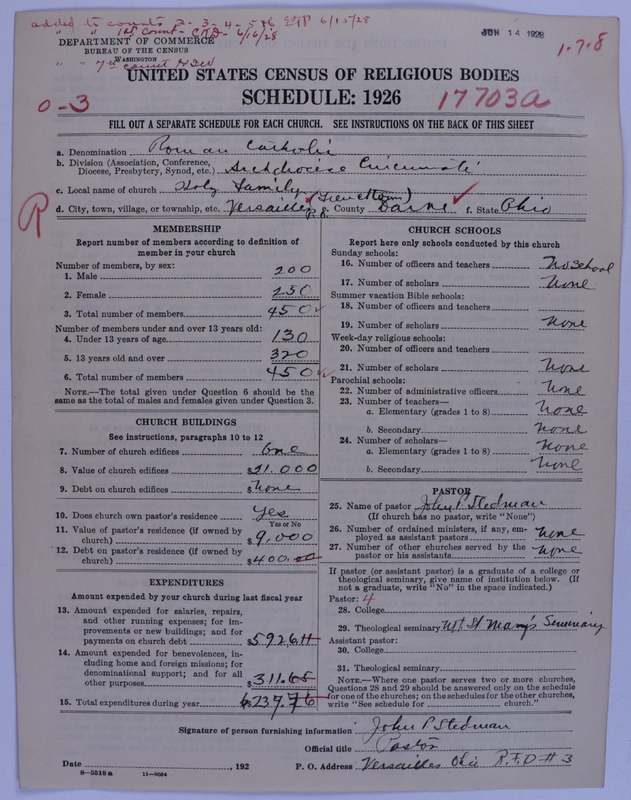 added to counts 2-3-4-5&6 6/15/28
" " 1st Count - CKD - 6/16/28
" " 7th count
JUN 14 1928
1-7-8
DEPARTMENT OF COMMERCE
BUREAU OF THE CENSUS
WASHINGTON
UNITED STATES CENSUS OF RELIGIOUS BODIES
SCHEDULE: 1926
0-3
17703a
FILL OUT A SEPARATE SCHEDULE FOR EACH CHURCH. SEE INSTRUCTIONS ON THE BACK OF THIS SHEET
a. Denomination Roman Catholic
b. Division (Association, Conference, Diocese, Presbytery, Synod, etc.) Archdiocese Cincinnati
c. Local name of church Holy Family
(Frenchtown)
d. City, town, village, or township, etc. Versailles e. County Darke f. State Ohio
R
MEMBERSHIP
Report number of members according to definition of member in your church
Number of members, by sex:
1. Male 200
2. Female 250
3. Total number of members 450
Number of members under and over 13 years old:
4. Under 13 years of age 130
5. 13 years old and over 320
6. Total number of members 450
NOTE.—The total given under Question 6 should be the same as the total of males and females given under Question 3.
CHURCH BUILDINGS
See instructions, paragraphs 10 to 12
7. Number of church edifices One
8. Value of church edifices $21.000
9. Debt on church edifices $None
10. Does church own pastor's residence Yes
Yes or No
11. Value of pastor's residence (if owned by church) $9,000
12. Debt on pastor's residence (if owned by church) $400.00
EXPENDITURES
Amount expended by your church during last fiscal year
13. Amount expended for salaries, repairs, and other running expenses; for improvements or new buildings; and for payments on church debt $5926.11
14. Amount expended for benevolences, including home and foreign missions; for denominational support; and for all other purposes $311.65
15. Total expenditures during year $6237.76
CHURCH SCHOOLS
Report here only schools conducted by this church
Sunday schools:
16. Number of officers and teachers No School
17. Number of scholars None
Summer vacation Bible schools:
18. Number of officers and teachers
19. Number of scholars None
Week-day religious schools:
20. Number of officers and teachers
21. Number of scholars None
Parochial schools:
22. Number of administrative officers None
23. Number of teachers—
a. Elementary (grades 1 to 8) None
b. Secondary None
24. Number of scholars—
a. Elementary (grades 1 to 8) None
b. Secondary None
PASTOR
25. Name of pastor John P. Stedman
(If church has no pastor, write "None")
26. Number of ordained ministers, if any, employed as assistant pastors None
27. Number of other churches served by the pastor or his assistants None
If pastor (or assistant pastor) is a graduate of a college or theological seminary, give name of institution below. (If not a graduate, write "No" in the space indicated.)
Pastor: 4
28. College
29. Theological seminary Mt. St Marys Seminary
Assistant pastor:
30. College
31. Theological seminary
NOTE.—Where one pastor serves two or more churches, Questions 28 and 29 should be answered only on the schedule for one of the churches; on the schedules for the other churches, write "See schedule for church."
Signature of person furnishing information John P Stedman
Official title Pastor
Date , 192
P. O. Address Versailles Ohio R.F.D # 3
8—5518a 11—9064